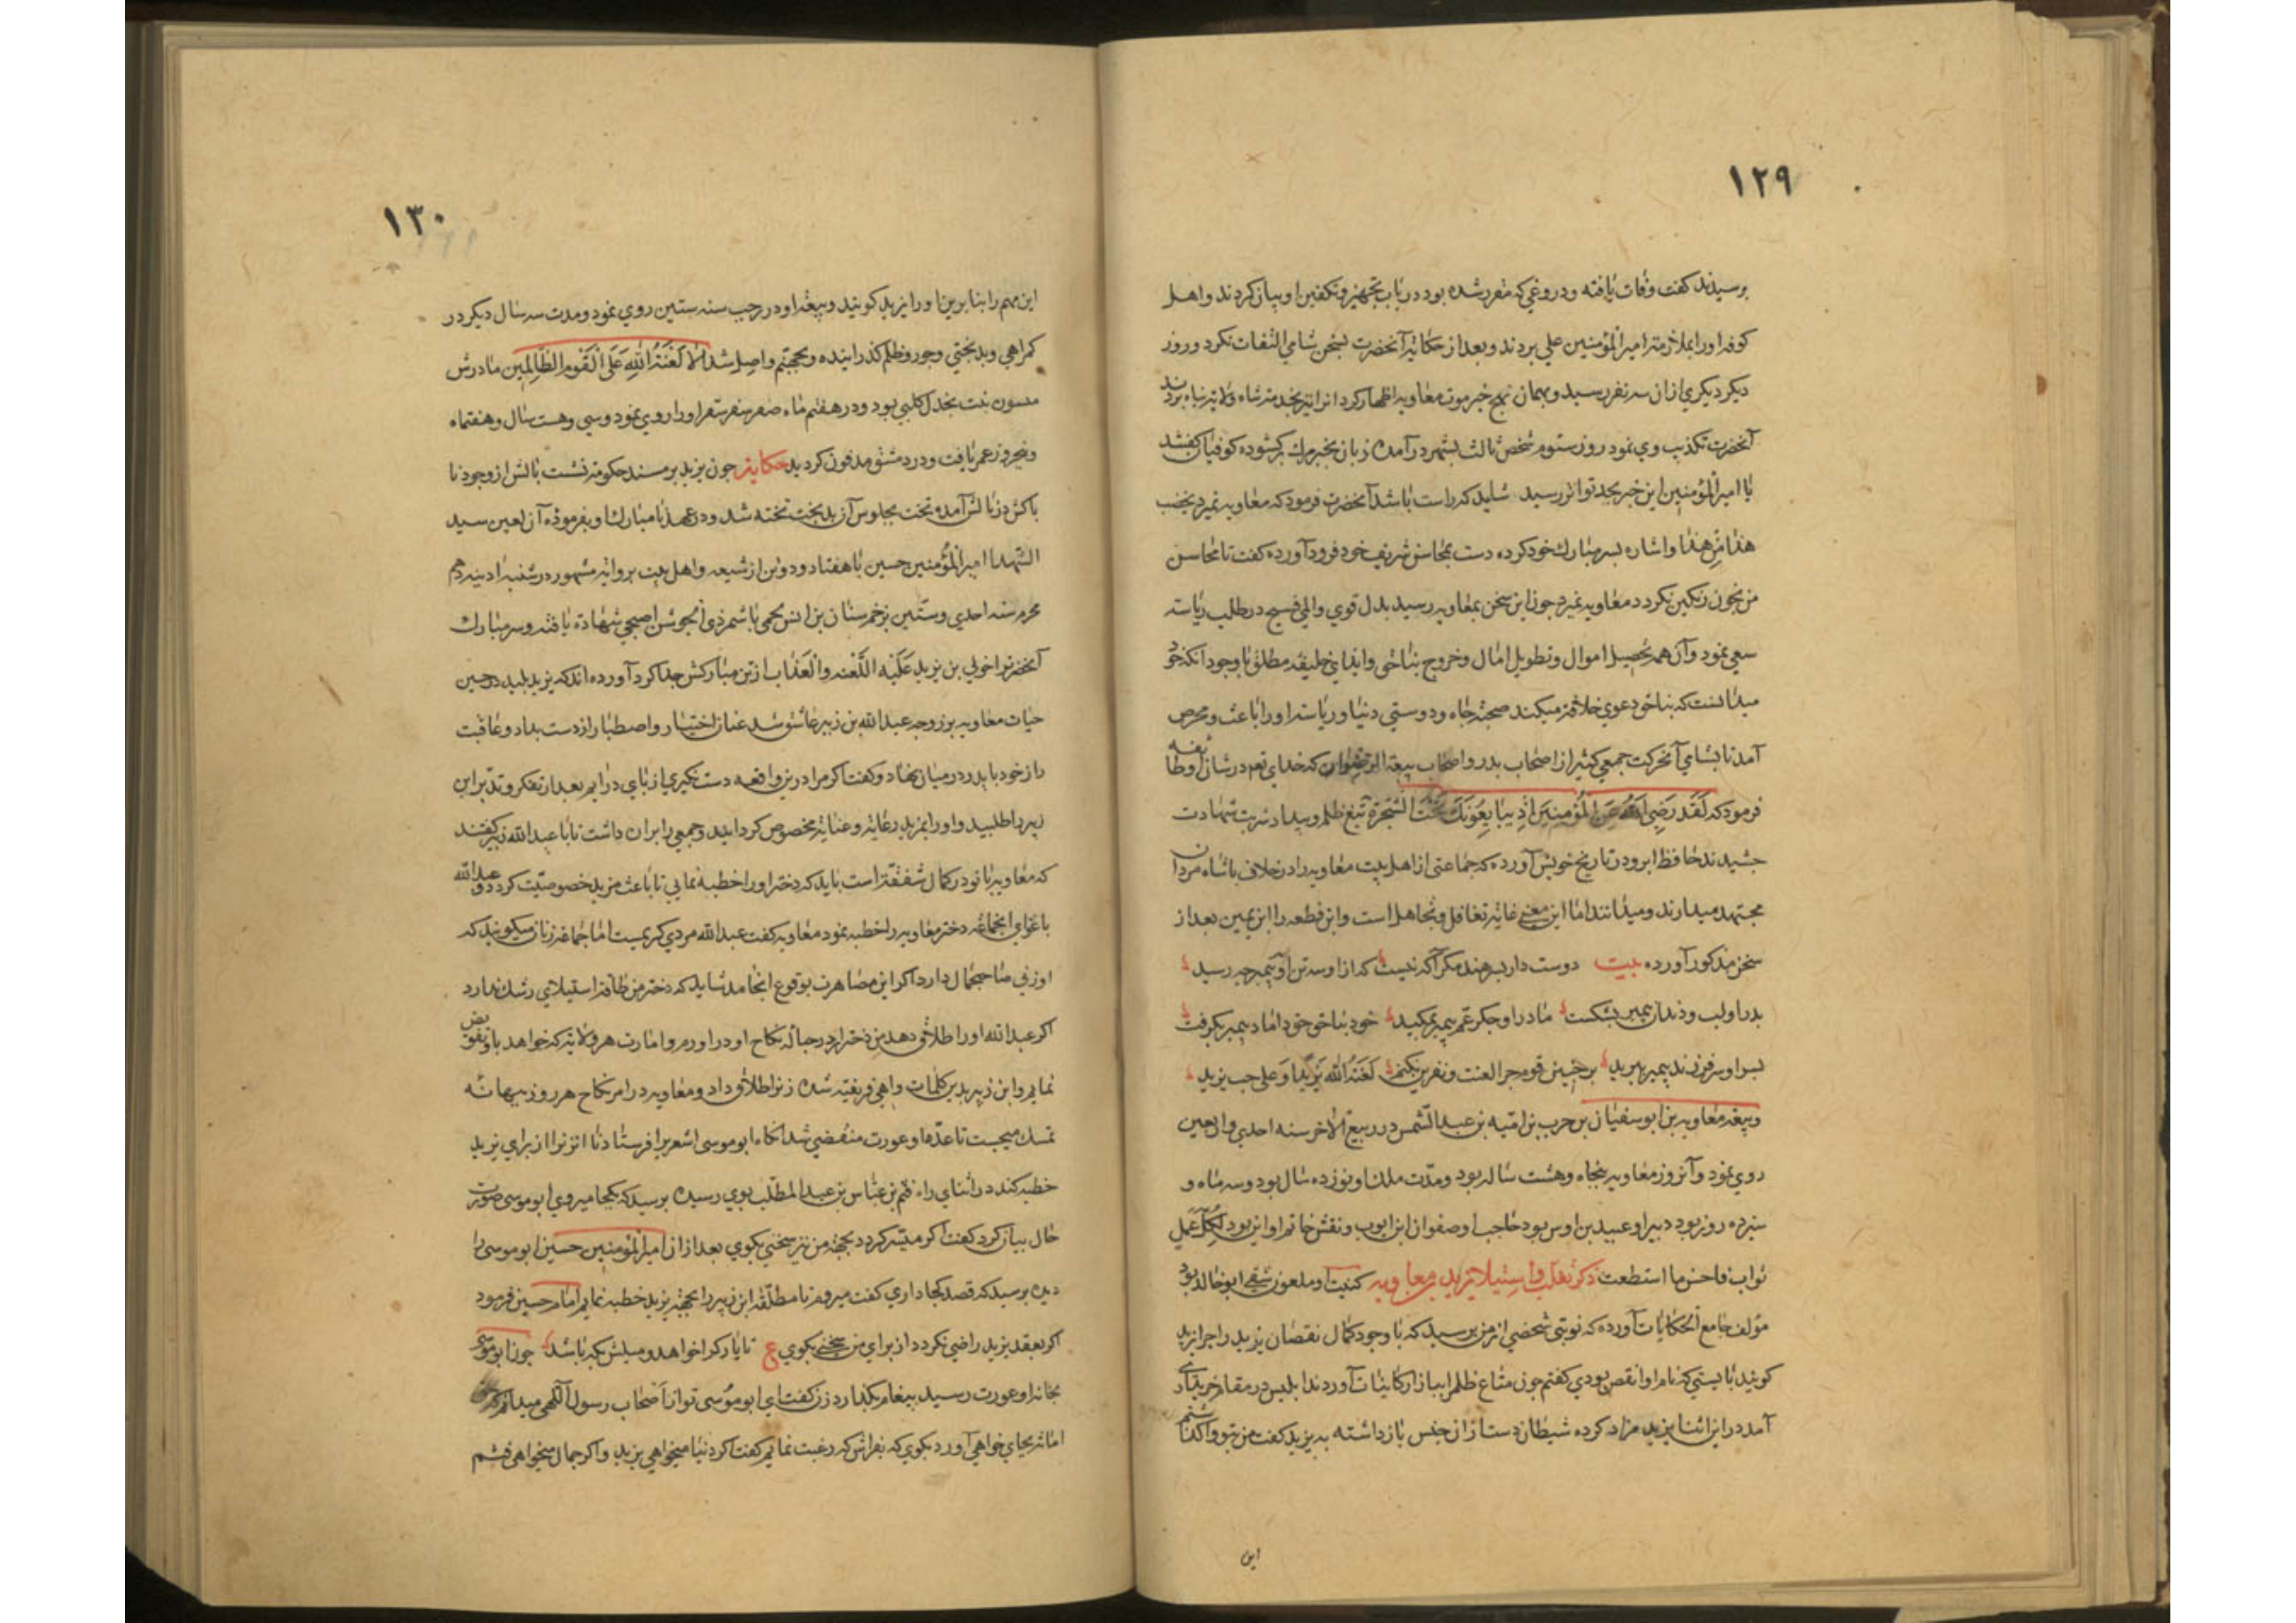 ١٢٩
برسیدند کفت وفات یافته ودروغی که مقرر شده بود در باب تجهیز وتکفین او بیان کردند واهل
کوفه اورا بملازمة امیر المؤمنین علی بردند وبعد از حکایة آنحضرت بسخن شامی التفات نکرد وروز
دیکر دیکری ازان سه نفر رسید وبهمان نهج خبر موت معاویه اظهار کرد انرا نیز بخدمة شاه ولایة پناه بردند
آنحضرت تکذیب وی نمود روز سئوم شخص ثالث بشهر درآمده زبان بخبر مرک برکشوده کوفیان کفتند
یا امیر المؤمنین این خبر بحد تواتر رسید شاید که راست باشد آنحضرت فرمود که معاویه نمیرد یخضب
هذا من هذا واشاره بسر مبارک خود کرده دست بمحاسن شریف خود فرود آورده کفت تا محاسن
من بخون رنکین نکردد معاویه نمیرد جون این سخن بمعاویه رسید بدل قوی وامل فسیح در طلب ریاسة
سعی نمود وآن همه تحصیل اموال وتطویل امال وخروج بناحق وایذای خلیفه مطلق با وجود آنکه خود
میدانست که بناحق دعوی خلافة میکند صحبة جاه ودوستی دنیا وریاسة اورا باعث ومحرص
آمد تا بشامی آنحرکت جمعی کثیر از اصحاب بدر واصحاب بیعة الرضوان که خدای تعه در شان اوطایفه
فرمود که لَقَد رَضِیَ اللهُ عَنِ المُؤمِنینَ اِذ یُبایِعُونَکَ تَحتَ الشَجَرَة بتیغ ظلم وبیداد شربت شهادت
جشیدند حافظ ابرو در تاریخ خویش آورده که جماعتی از اهل بیت معاویه را در خلاف با شاه مردان
مجتهد میدارند ومیدانند اما این معنی غایة تغافل وتجاهل است واین قطعه را ابن یمین بعد از
سخن مذکور آورده بیت دوست دار بسر هند مکر آکه نیست که از او وسه تن او بیمبر جه رسید
بدر او لب ودندان بیمبر بشکست مادر او جکر عم بیمبر بمکید خود بناحق حق داماد بیمبر بکرفت
بسر او سر فرزند بیمبر ببرید بر جنین قوم جرا لعنت ونفرین نکنم لَعَنَةُ الله یَزیداً وَعلی حب یزید
وبیعة معاویه بن ابو سفیان بن حرب بن امیه بن عبد الشمس در ربیع الاخر سنه احدی واربعین
روی نمود وآنروز معاویه پنجاه وهشت ساله بود ومدّت ملک او نوزده سال بود وسه ماه و
سیزده روز بود دبیر او عبید بن اوس بود حاجب او صفوان ابن ایوب ونقش خاتم او این بود لِکُلِّ عَمَلٍ
ثواب فاحسن ما استطعت ذکر تغلب واستیلا یزید بن معاویه کنیت او ملعون شقی ابو خالد بود
مؤلف جامع الحکایات آورده که نوبتی شخصی از من برسید که با وجود کمال نقصان یزید را جرا یزید
کویند بایستی که نام او انقص بودی کفتم جون متاع ظلم را ببازار کاینات آوردند ابلیس در مقام خریداری
آمد در این اثنا یزید مزاد کرده شیطان دست از ان جنس باز داشته به یزید کفت من بتو واکذاشتم
این
١٣٠
این مهم را بنا برین اورا یزید کویند وبیعة او در رجب سنه ستین روی نمود ومدت سه سال دیکر در
کمراهی وبدبختی وجور وظلم کذرانیده وبجهنم واصل شد اَلا لَعْنَةُ اللهِ عَلَی اْلقَوْمِ الظّالِمین مادرش
میسون بنت بحدل کلبی بود ودر هفتم ماه صفر سفر سقر اورا روی نمود وسی وهست سال وهفتماه
وپنجروز عمر یافت ودر دمشق مدفون کردید حکایة جون یزید بر مسند حکومة نشست بالش از وجود نا
باکش در نالش آمد وتخت بجلوس آن بدبخت تخته شد ودر عهد نامبارک او بفرموده آن لعین سید
الشهدا امیر المؤمنین حسین با هفتاد ودو تن از شیعه واهل بیت بروایة مشهور در شنبه ادینه دهم
محرم سنه احدی وستین بزخم سنان بن انس نخعی با شمر ذی الجوشن اصبحی شهادة یافته وسر مبارک
آنحضرترا خولی بن یزید عَلَیْهِ اللَّعْنه والْعَذاب از تن مبارکش جدا کرد آورده اند که یزید بلید در حین
حیات معاویه بر زوجه عبد الله بن زبیر عاشق شد عنان اختیار واصطبار از دست بداد وعاقبت
راز خود با پدر در میان نهاد وکفت اکر مرا درین واقعه دست نکیری از بای در ایم بعد از تفکر وتدبر ابن
زبیر را طلبید واورا بمزید رعایة وعنایة مخصوص کردانید وجمعی را بران داشت تا با عبد الله زبیر کفتند
که معاویه را با تو در کمال شفقة است باید که دختر اورا خطبه نمایی تا باعث مزید خصوصیّت کردد وعبد الله
باغوای انجماعة دختر معاویه را خطبه نمود معاویه کفت عبد الله مردی کریمست اما جماعة زنان میکویند که
او زنی صاحبجمال دارد اکر این مصاهرت بوقوع انجامد شاید که دختر من طاقة استیلای رشک ندارد
اکر عبد الله اورا طلاق دهد من دختر را در حباله نکاح او در اورم وامارت هر ولایة که خواهد باو تفویض
نمایم وابن زبیر بدین کلمات واهی فریفته شده زنرا طلاق داد ومعاویه در امر نکاح هر روز ببهانه
تمسک میجست تا عدّه او عورت منقضی شد انکاه ابو موسی اشعریرا فرستاد تا انزنرا از برای یزید
خطبه کند در اثنای راه قثم بن عباس بن عبد المطلب بوی رسیده برسید که بکجا میروی ابو موسی صورت
حال بیان کرد کفت اکر میسّر کردد بجهة من نیز سخنی بکوی بعد ازان امیر المؤمنین حسین ابو موسی را
دیده برسید که قصد کجا داری کفت میروم تا مطلّقه ابن زبیر را بجهة یزید خطبه نمایم امام حسین فرمود
اکر بعقد یزید راضی نکردد از برای من سخنی بکوی ع تا یار کرا خواهد ومیلش بکه باشد جون ابو موسی
بخانه او عورت رسید بیغام بکذارد زن کفت ای ابو موسی تو از اصحاب رسول آلهی میدانم که
امانة بجای خواهی آورد بکوی که بفراش که رغبت نمایم کفت اکر دنیا میخواهی یزید واکر جمال میخواهی قثم